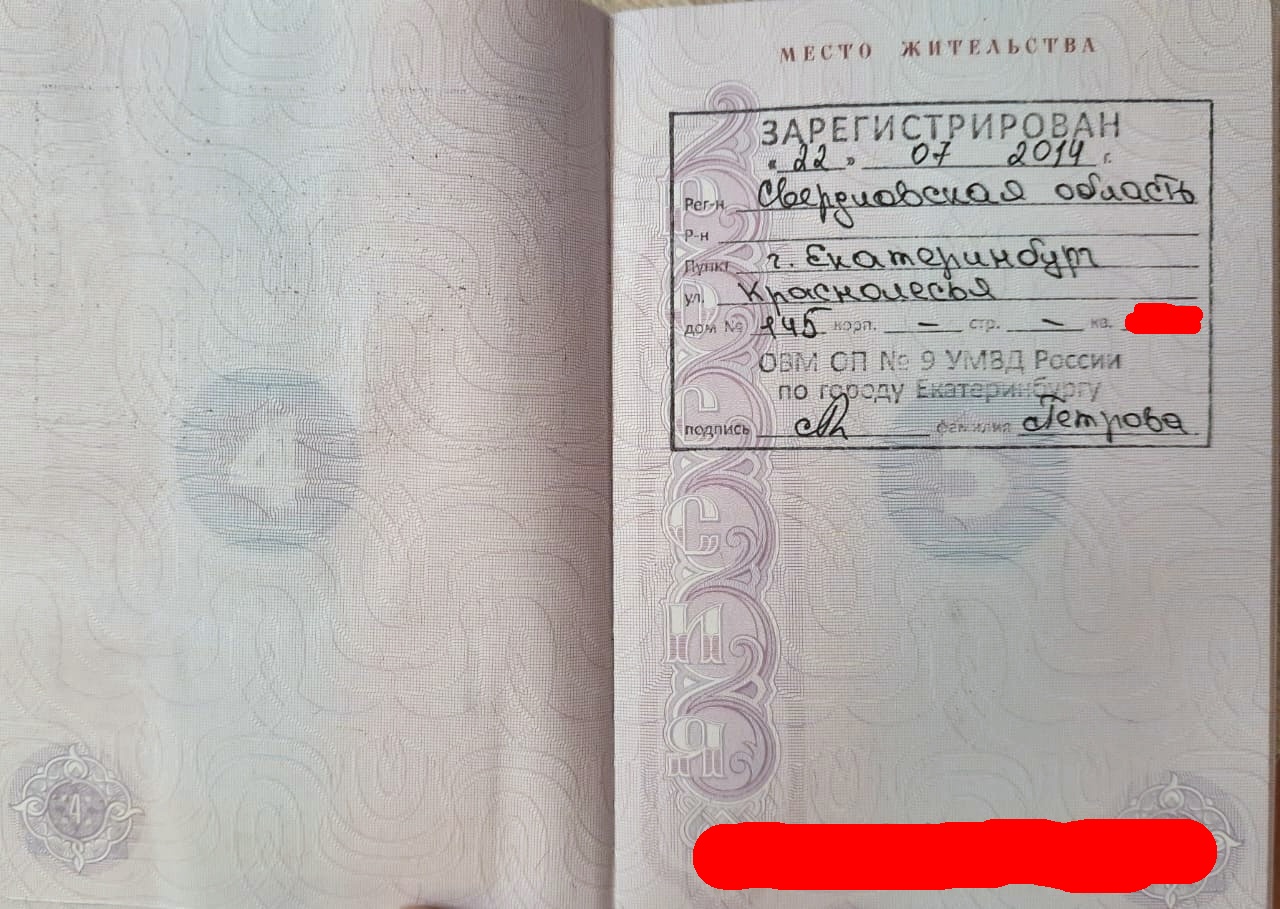 МЕСТО ЖИТЕЛЬСТВА
ЗАРЕГИСТРИРОВАН
«22» 07 2014 г.
Рег-н Свердловская область
Р-н
Пункт г. Екатеринбург
ул. Краснолесья
дом № 145 корп. – стр. – кв.
ОВМ ОП № 9 УМВД России
по городу Екатеринбургу
подпись фамилия Петрова
4
5
4